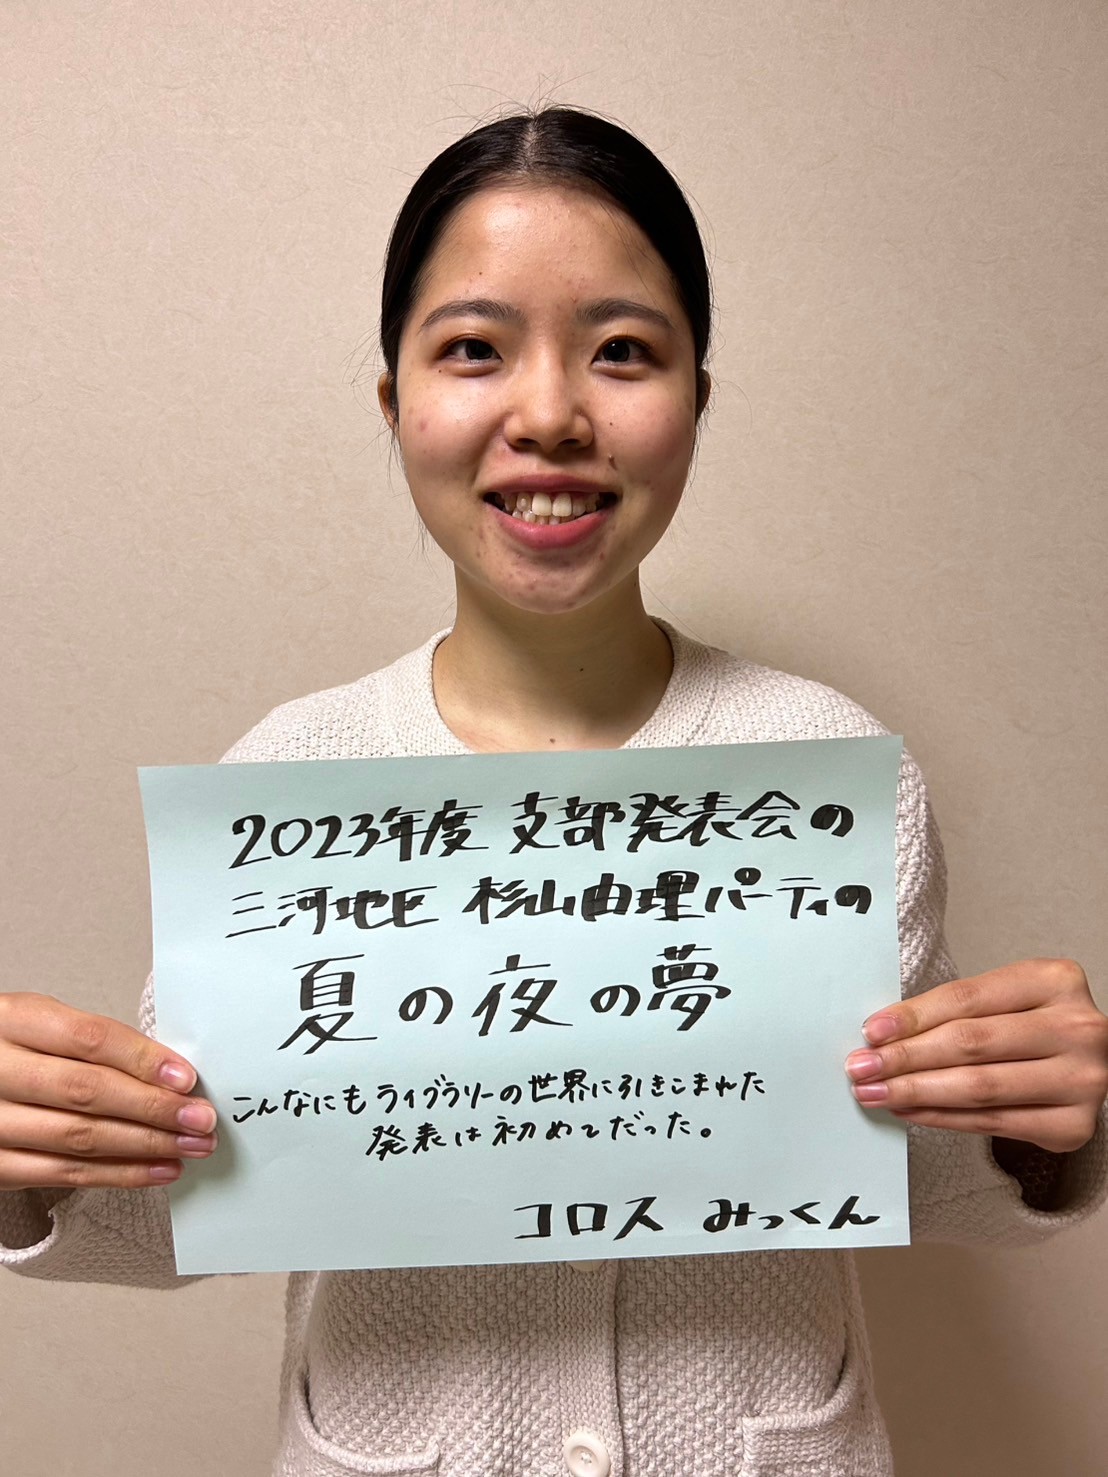 2023年度 支部発表会の
三河地区 杉山由理パーティの
夏の夜の夢
こんなにもライブラリーの世界に引きこまれた
発表は初めてだった。
コロス みっくん